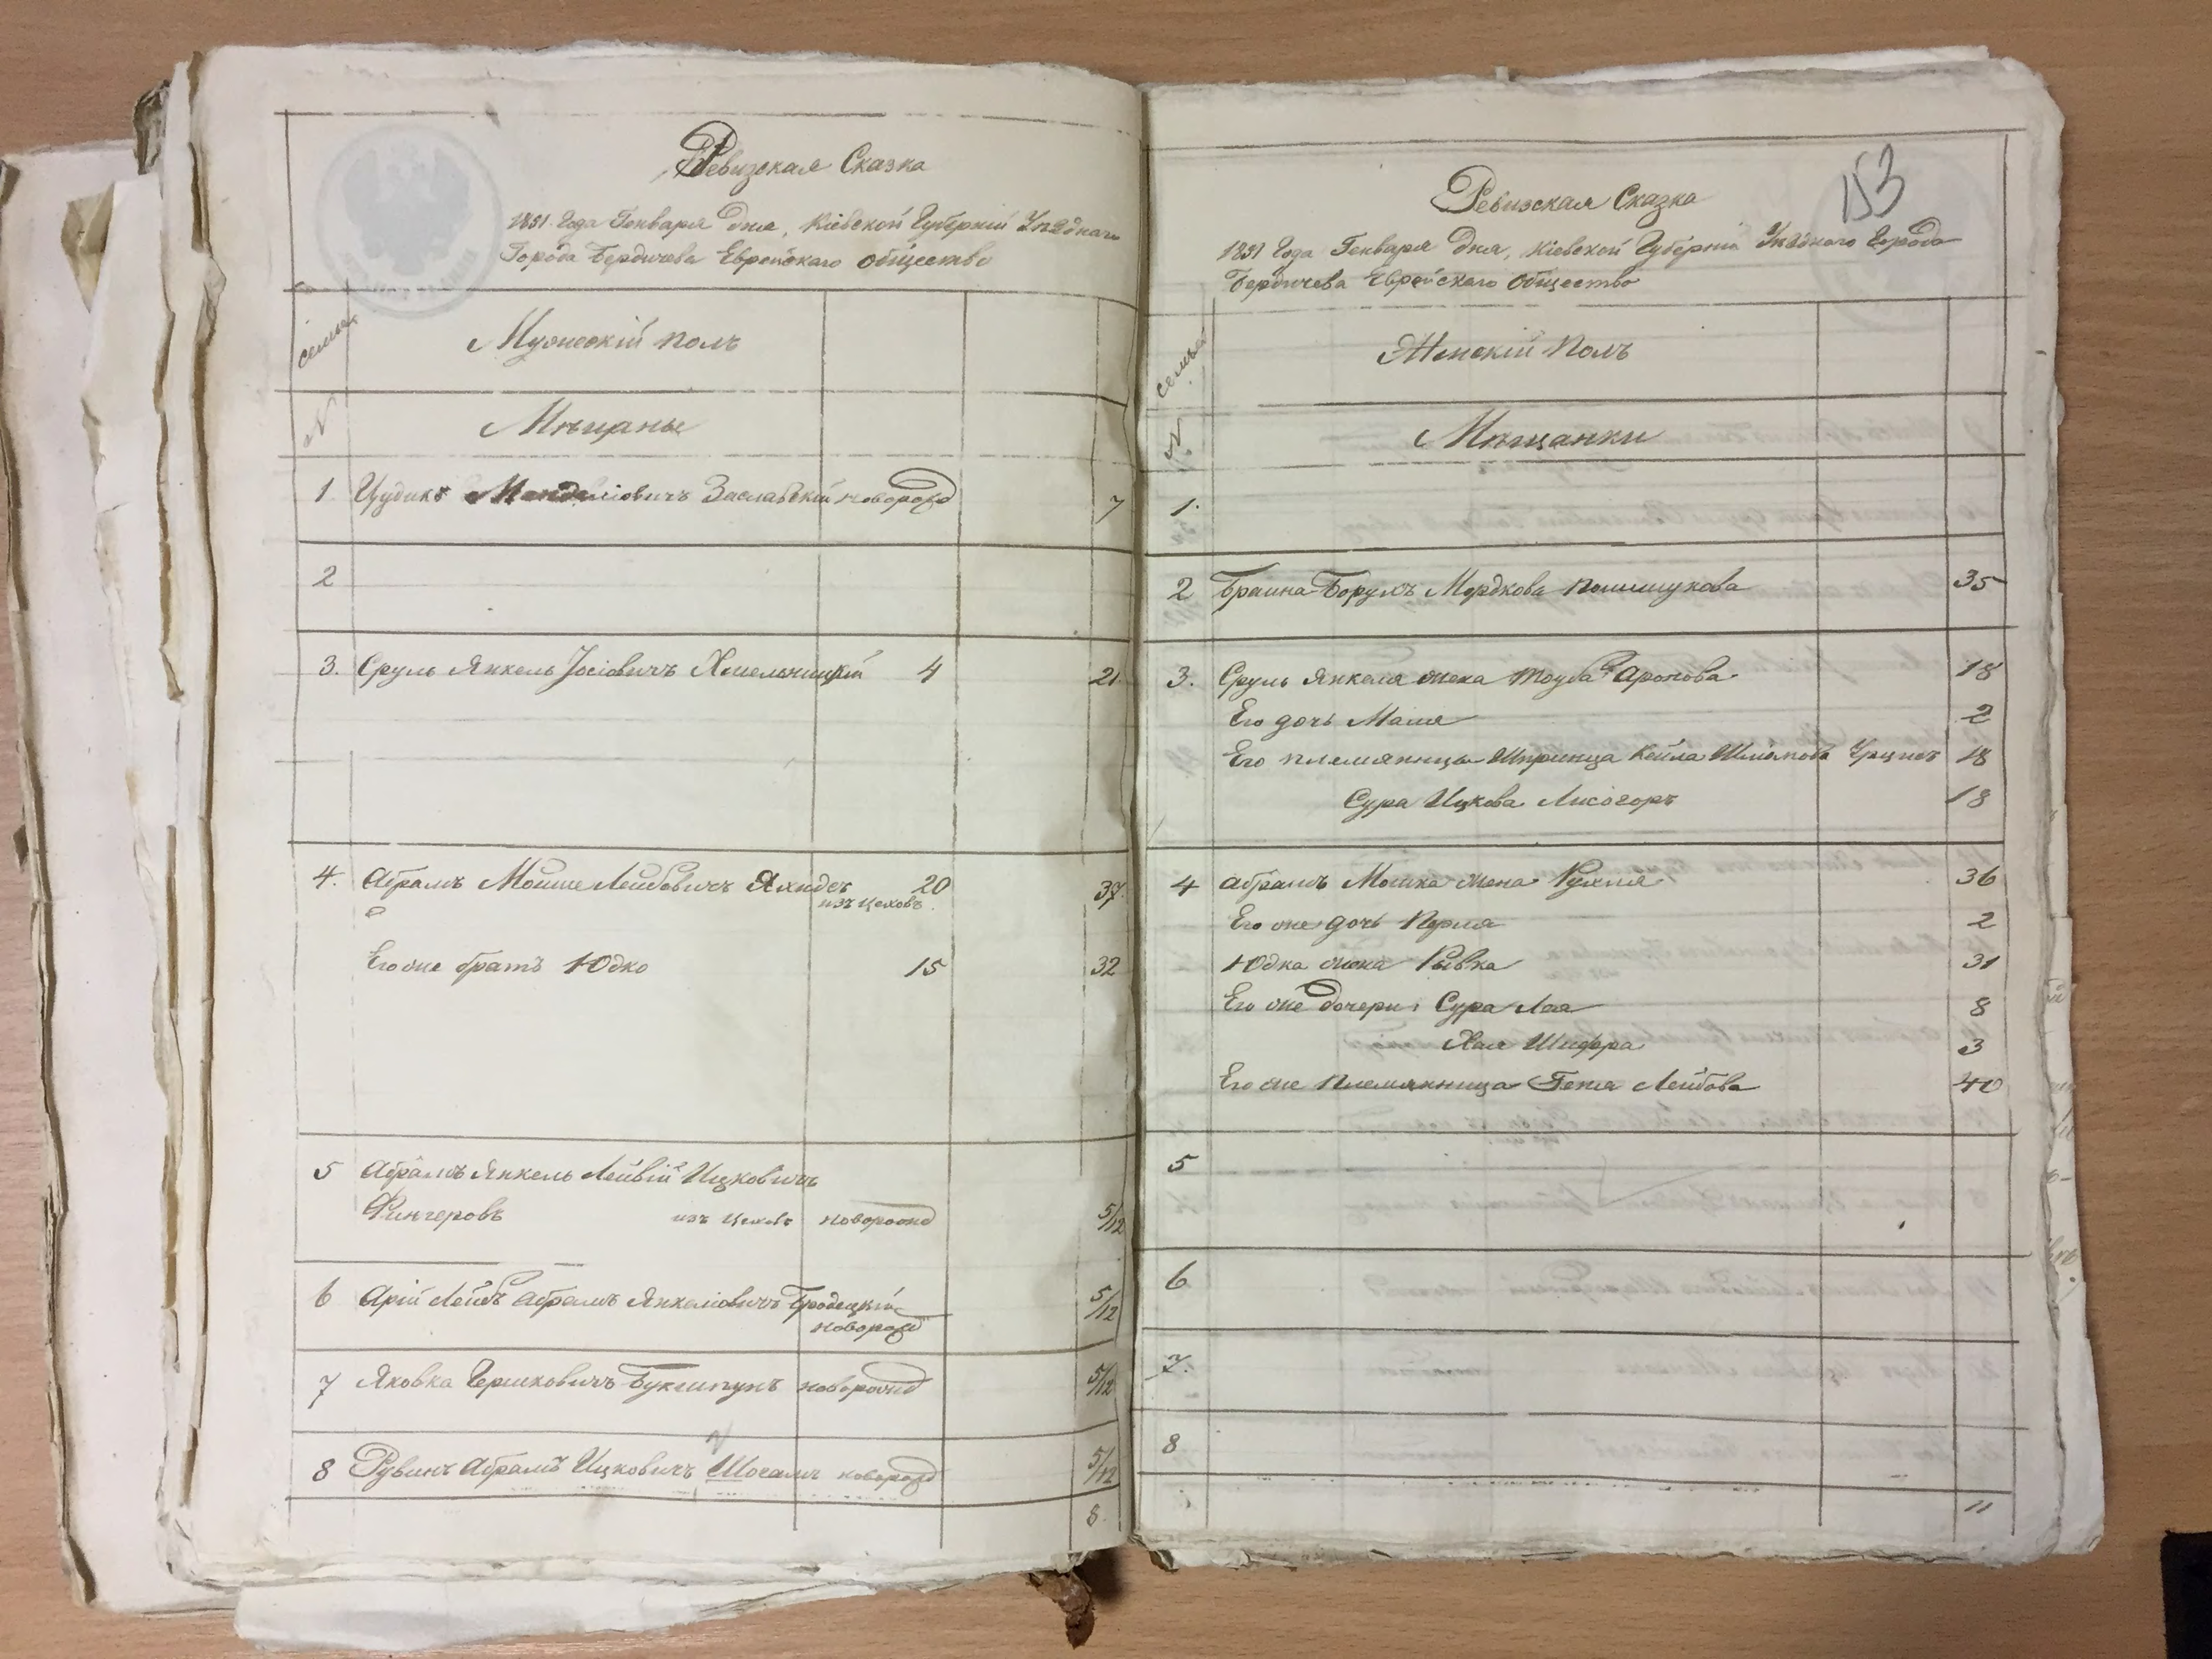 Ревизская Сказка
1851 Года Генваря Дня, Кіевской Губерніи Уѣзднаго
Города Бердичева Еврейскаго Общества
№ семьи
Мужескій Полъ
Мѣщаны
1 Цудикъ Менделіовичъ Заславскій новорожд 7
2
3. Сруль Янкель Іосіовичъ Хмельницкій 4 21
4. Абрамъ Мошко Лейбовичъ 20 37
изъ цеховъ
Его же братъ Юдко 15 32
5 Абрамъ Янкель Лейвій Ицковичъ
Фингеровъ изъ цеховъ новорожд 5/12
6 Арій Лейбъ Абрамъ Янкеліовичъ Бродецкій 5/12
новорожд
7 Яковка Гершковичъ Букшпунъ новорожд 5/12
8 Рувинъ Абрамъ Ицковичъ новорожд 5/12
8
153
Ревизская Сказка
1851 Года Генваря Дня, Кіевской Губерніи Уѣзднаго Города
Бердичева Еврейскаго Общества
№ семьи
Женскій Полъ
Мѣщанки
1.
2 Браина Борухъ Мордкова Полишукова 35
3. Сруль Янкеля жена Тауба Аронова 18
Его дочь Маша 2
Его племянницы Шпринца Кейла Шліомова 18
Сура Ицкова Лисогоръ 18
4 Абрамъ Мошка жена Рухля 36
Его же дочь Перля 2
Юдка жена Рывка 31
Его же дочери: Сура Лая 8
Хая Шифра 3
Его же племянница Геня Лейбова 40
5
6
7.
8
11